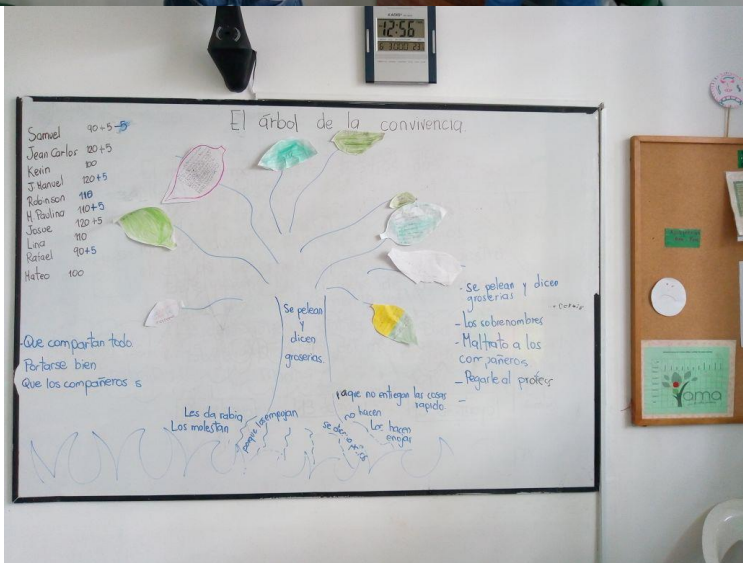 12:56
El árbol de la convivencia
Samuel 90+5-5
Jean Carlos 120+5
Kevin 100
J Manuel 120+5
Robinson 110
H Paulina 110+5
Josue 120+5
Lina 110
Rafael 90+5
Mateo 100
-Que compartan todo
Portarse bien
Que los compañeros s
Se pelean
y
dicen
groserias.
- Se pelean y dicen
groserias
- Los sobrenombres
- Maltrato a los
compañeros
- Pegarle al profess
-
Les da rabia
Los molestan
porque los empujan
que no entregan las cosas
rapido.
no hacen
Los hacen
enojar
ama